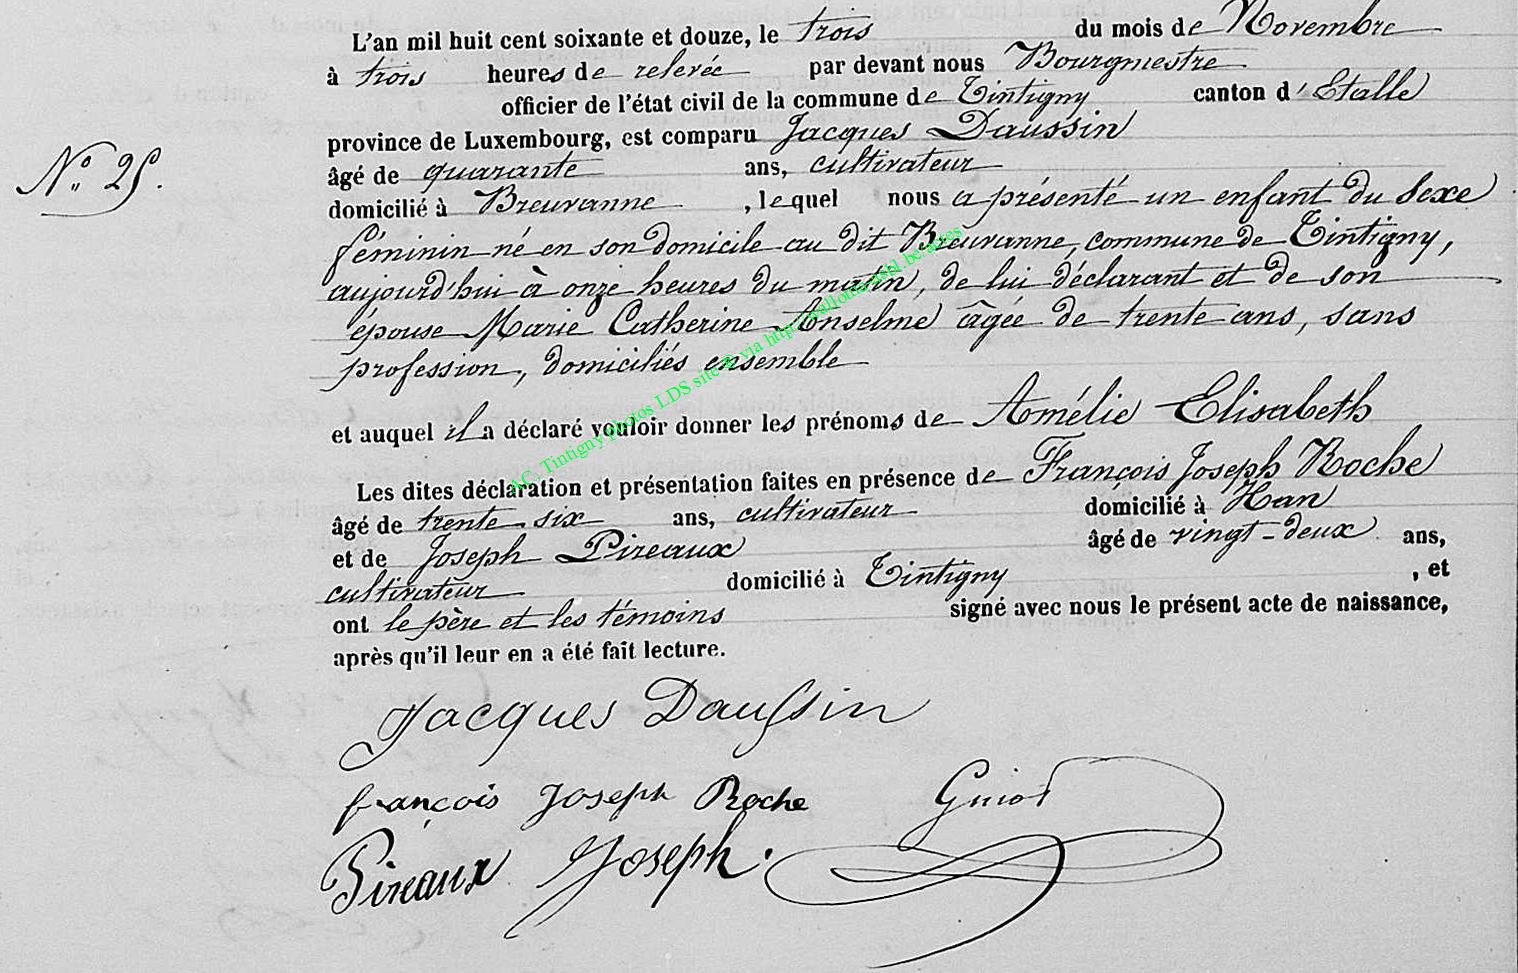 L'an mil huit cent soixante et douze, le trois du mois de Novembre
à trois heures de relevée par devant nous Bourgmestre
officier de l'état civil de la commune de Tintigny canton d'Etalle
province de Luxembourg, est comparu Jacques Daussin
âgé de quarante ans, cultivateur
N° 25.
domicilié à Breuvanne, lequel nous a présenté un enfant du sexe
féminin né en son domicile au dit Breuvanne, commune de Tintigny,
aujourd'hui à onze heures du matin, de lui déclarant et de son
épouse Marie Catherine Anselme âgée de trente ans, sans
profession, domiciliés ensemble
et auquel il a déclaré vouloir donner les prénoms de Amélie Elisabeth
Les dites déclaration et présentation faites en présence de François Joseph Roche
âgé de trente six ans, cultivateur domicilié à Han
et de Joseph Pireaux âgé de vingt-deux ans,
cultivateur domicilié à Tintigny, et
ont le père et les témoins signé avec nous le présent acte de naissance,
après qu'il leur en a été fait lecture.
Jacques Daussin
françois Joseph Roche Guiot
Pireaux Joseph.
AC, Tintigny photos LDS site via http://